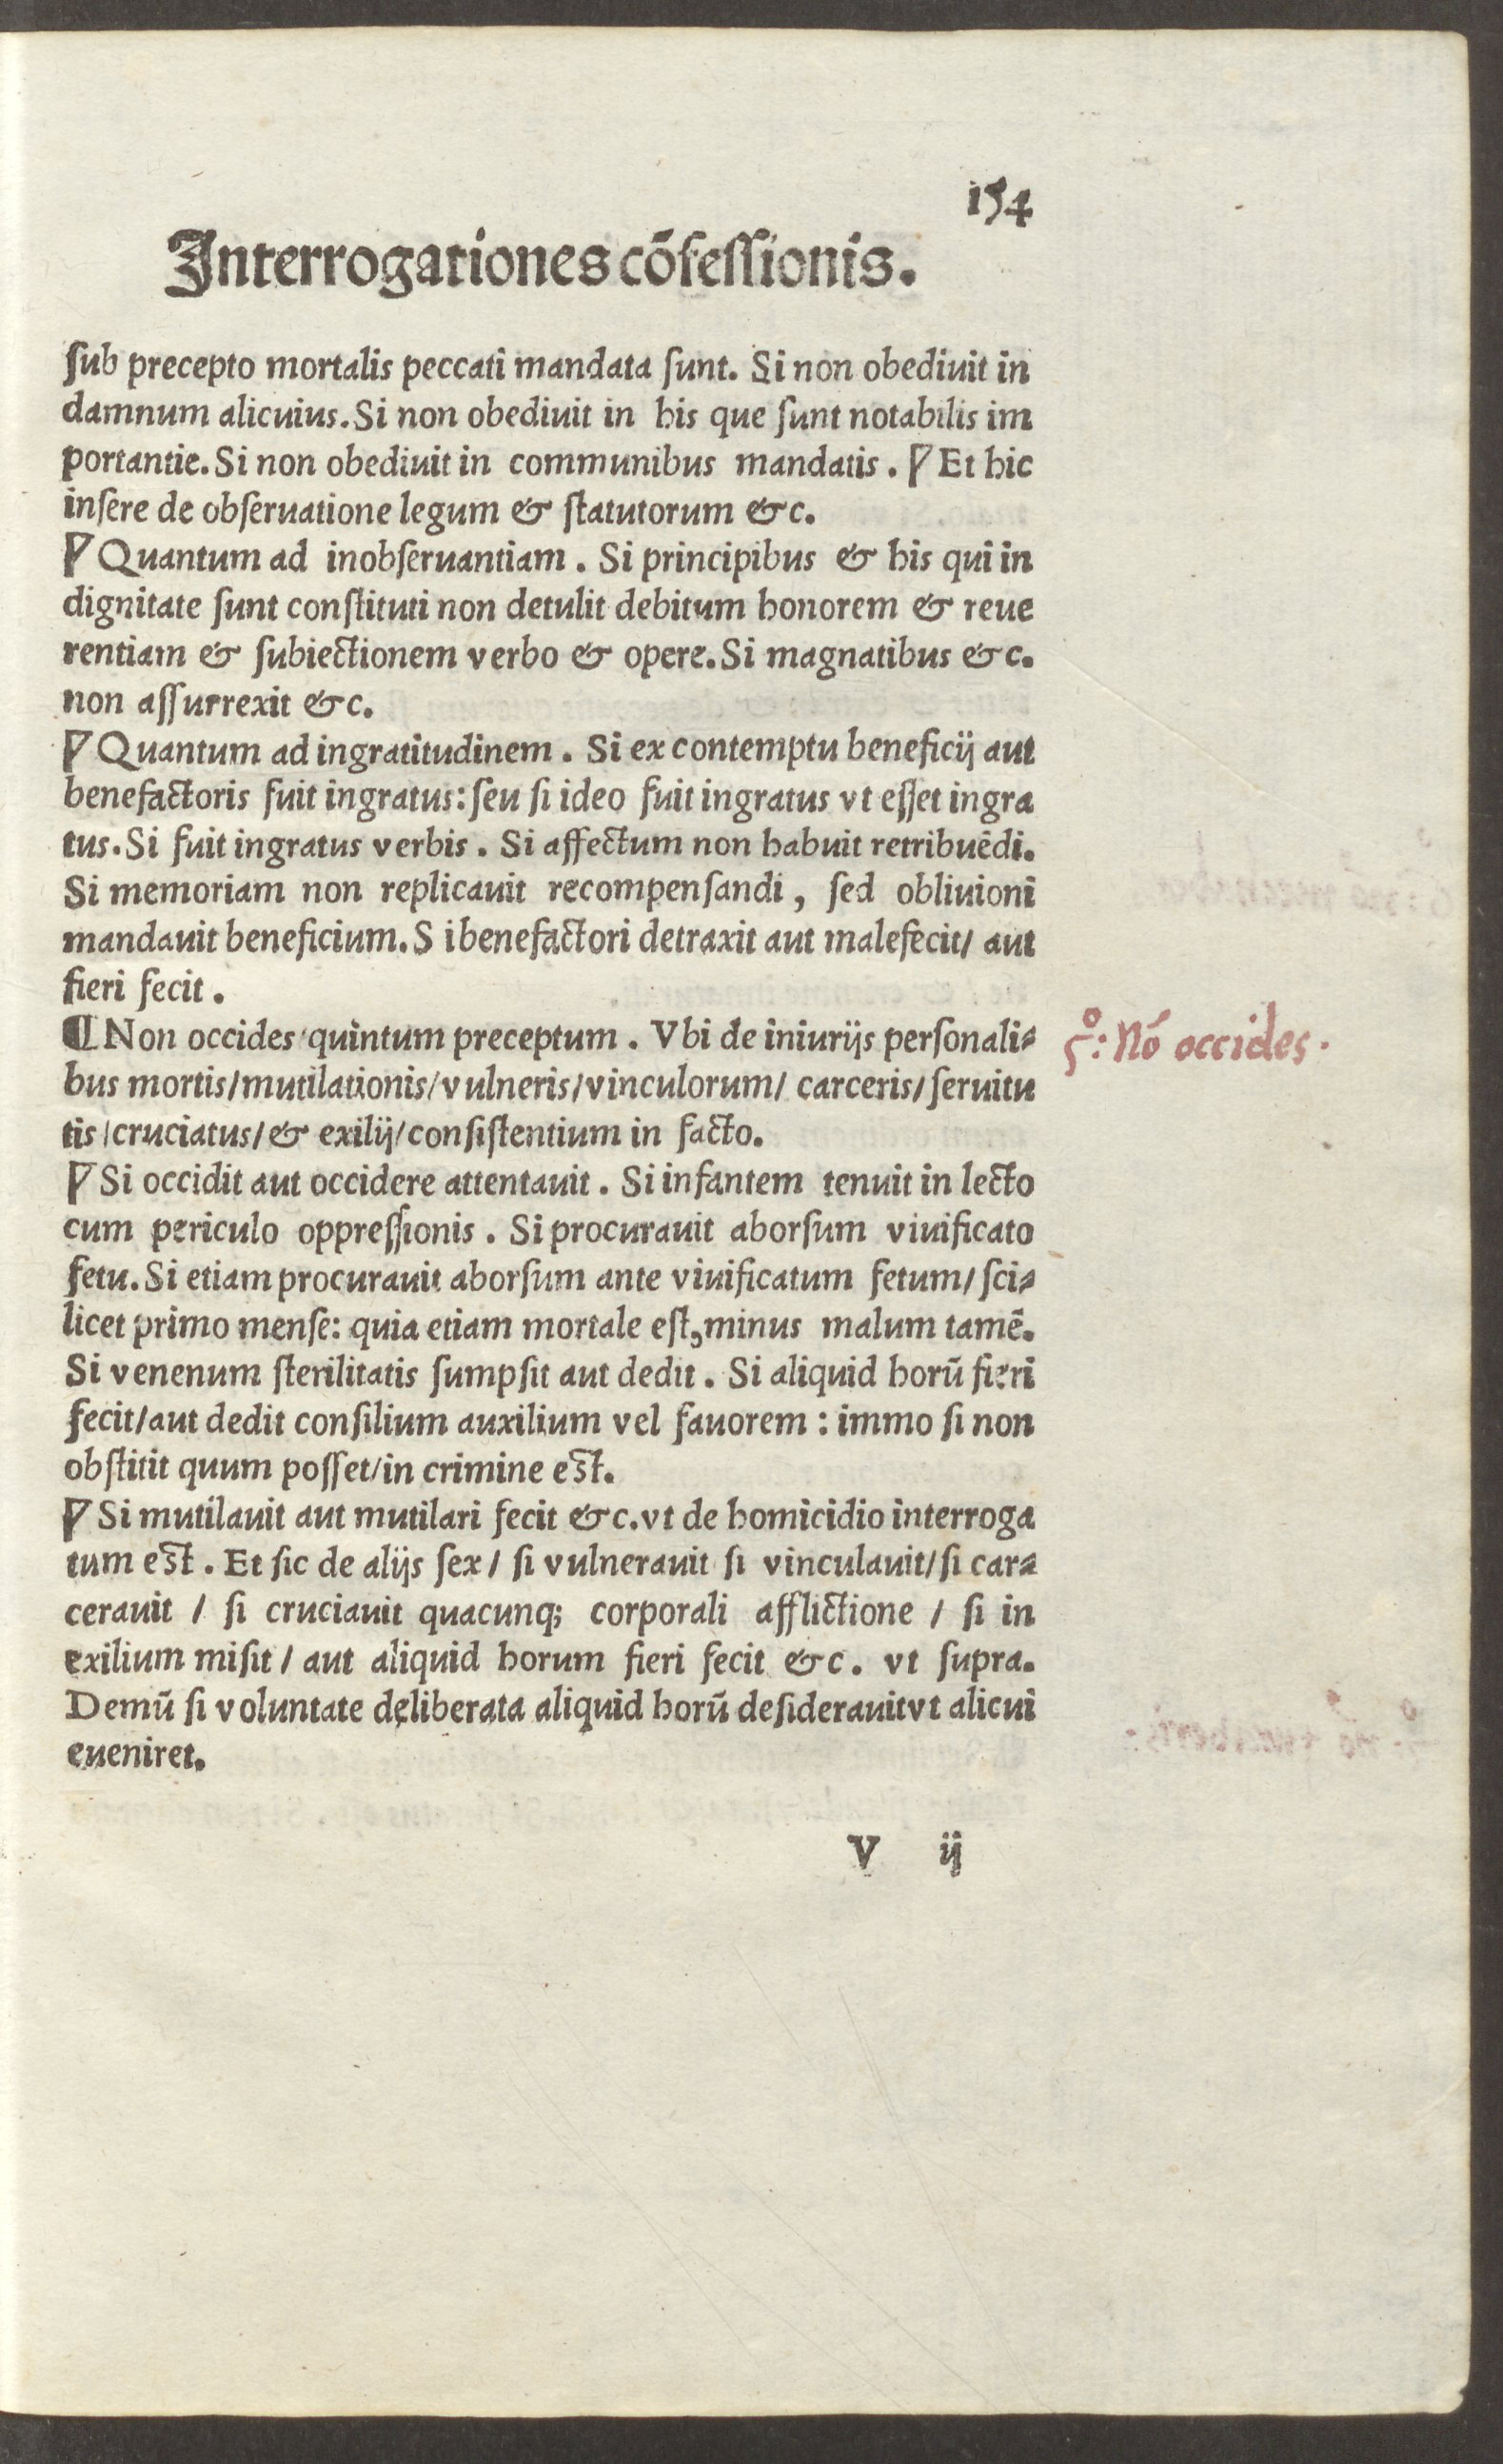 154
Interrogationes cōfessionis.
sub precepto mortalis peccati mandata sunt. Si non obediuit in
damnum alicuius. Si non obediuit in his que sunt notabilis im
portantie. Si non obediuit in communibus mandatis. ¶ Et hic
insere de obseruatione legum & statutorum &c.
¶ Quantum ad inobseruantiam. Si principibus & his qui in
dignitate sunt constituti non detulit debitum honorem & reue
rentiam & subiectionem verbo & opere. Si magnatibus &c.
non assurrexit &c.
¶ Quantum ad ingratitudinem. Si ex contemptu beneficij aut
benefactoris fuit ingratus: seu si ideo fuit ingratus vt esset ingra
tus. Si fuit ingratus verbis. Si affectum non habuit retribuēdi.
Si memoriam non replicauit recompensandi, sed obliuioni
mandauit beneficium. S i benefactori detraxit aut malefecit/ aut
fieri fecit.
¶ Non occides quintum preceptum. Vbi de iniurijs personali⸗
bus mortis/mutilationis/vulneris/vinculorum/ carceris/seruitu
tis/cruciatus/& exilij/consistentium in facto.
5º: Nō occides.
¶ Si occidit aut occidere attentauit. Si infantem tenuit in lecto
cum periculo oppressionis. Si procurauit aborsum viuificato
fetu. Si etiam procurauit aborsum ante viuificatum fetum/ sci⸗
licet primo mense: quia etiam mortale est, minus malum tamē.
Si venenum sterilitatis sumpsit aut dedit. Si aliquid horū fieri
fecit/aut dedit consilium auxilium vel fauorem: immo si non
obstitit quum posset/in crimine est.
¶ Si mutilauit aut mutilari fecit &c. vt de homicidio interroga
tum est. Et sic de alijs sex/ si vulnerauit si vinculauit/si car⸗
cerauit / si cruciauit quacunq; corporali afflictione / si in
exilium misit/ aut aliquid horum fieri fecit &c. vt supra.
Demū si voluntate deliberata aliquid horū desiderauit vt alicui
eueniret.
V ij